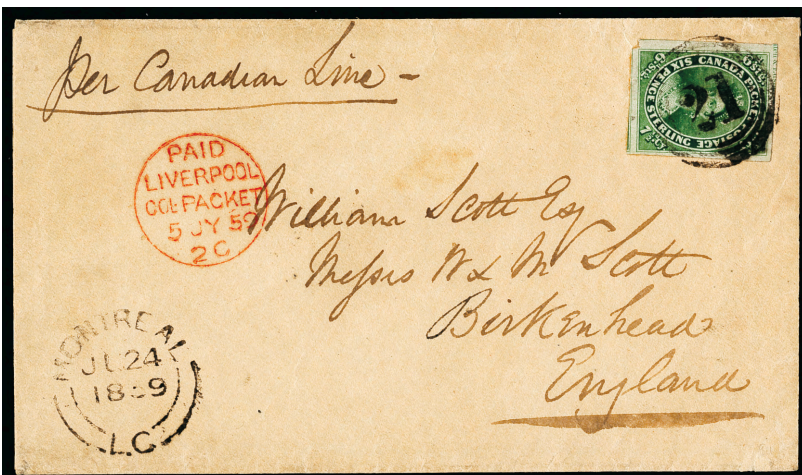 Per Canadian Line -
CANADA PACKET POSTAGE
SIX PENCE STERLING
21
PAID
LIVERPOOL
COL PACKET
5 JY 59
2C
William Scott Esq
Messrs W & M Scott
Birkenhead
England
MONTREAL
JU 24
1859
L.C